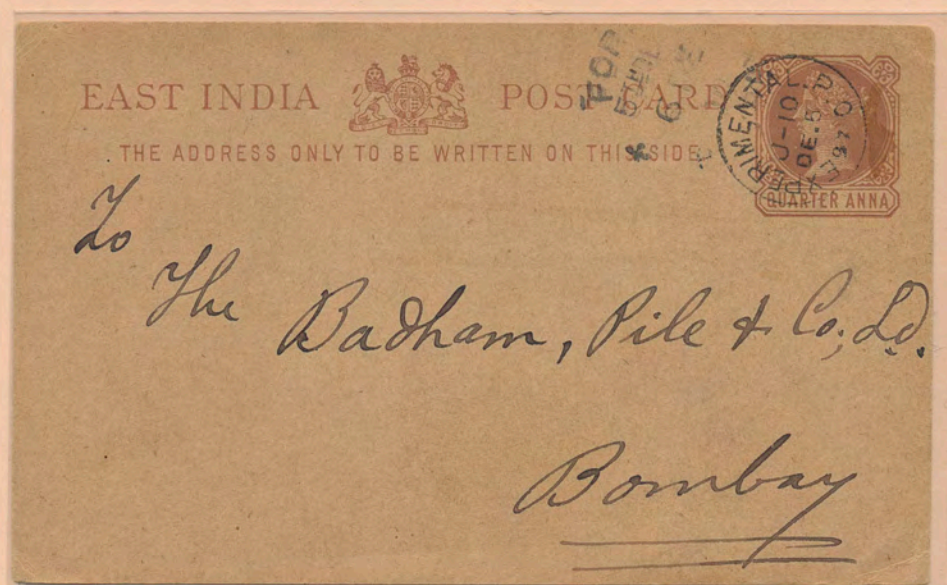 EAST INDIA POST CARD
THE ADDRESS ONLY TO BE WRITTEN ON THIS SIDE.
EXPERIMENTAL P.O.
U-10
DE.5
97
QUARTER ANNA
To
The Badham, Pile & Co; Ld.
Bombay